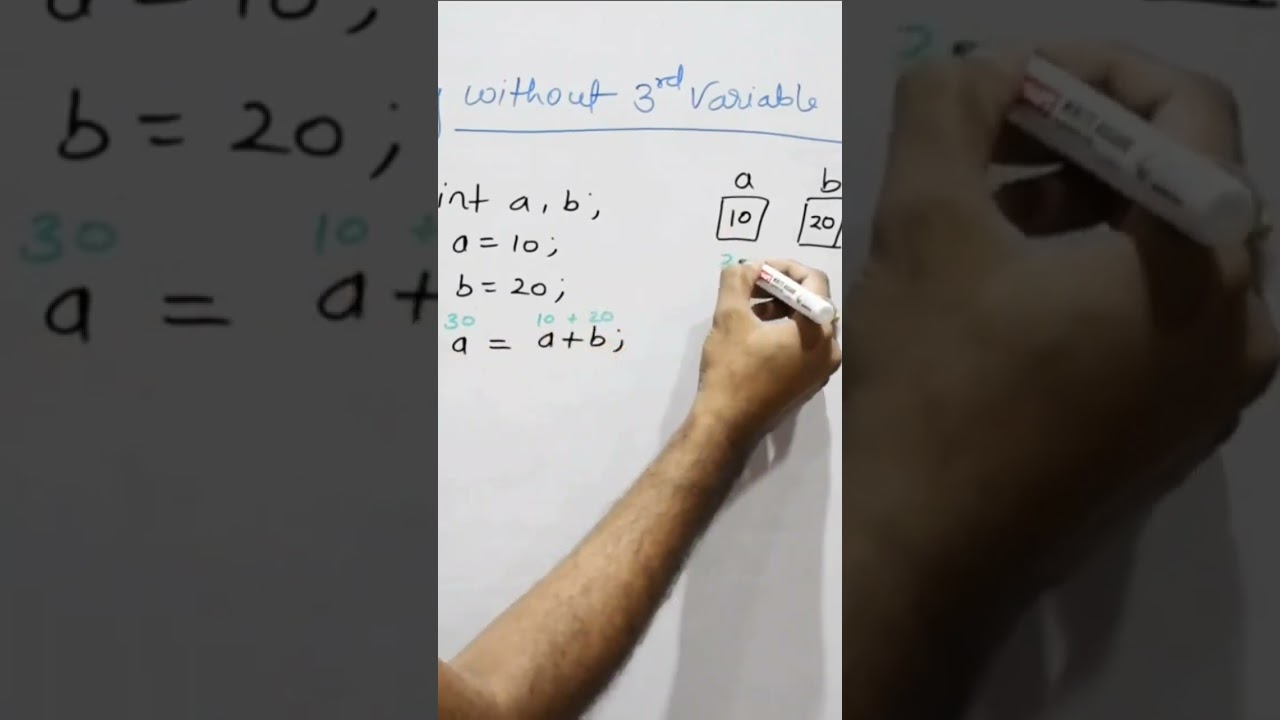 without 3rd Variable
int a, b;
a = 10;
b = 20;
30 10 + 20
a = a+b;
a b
10 20